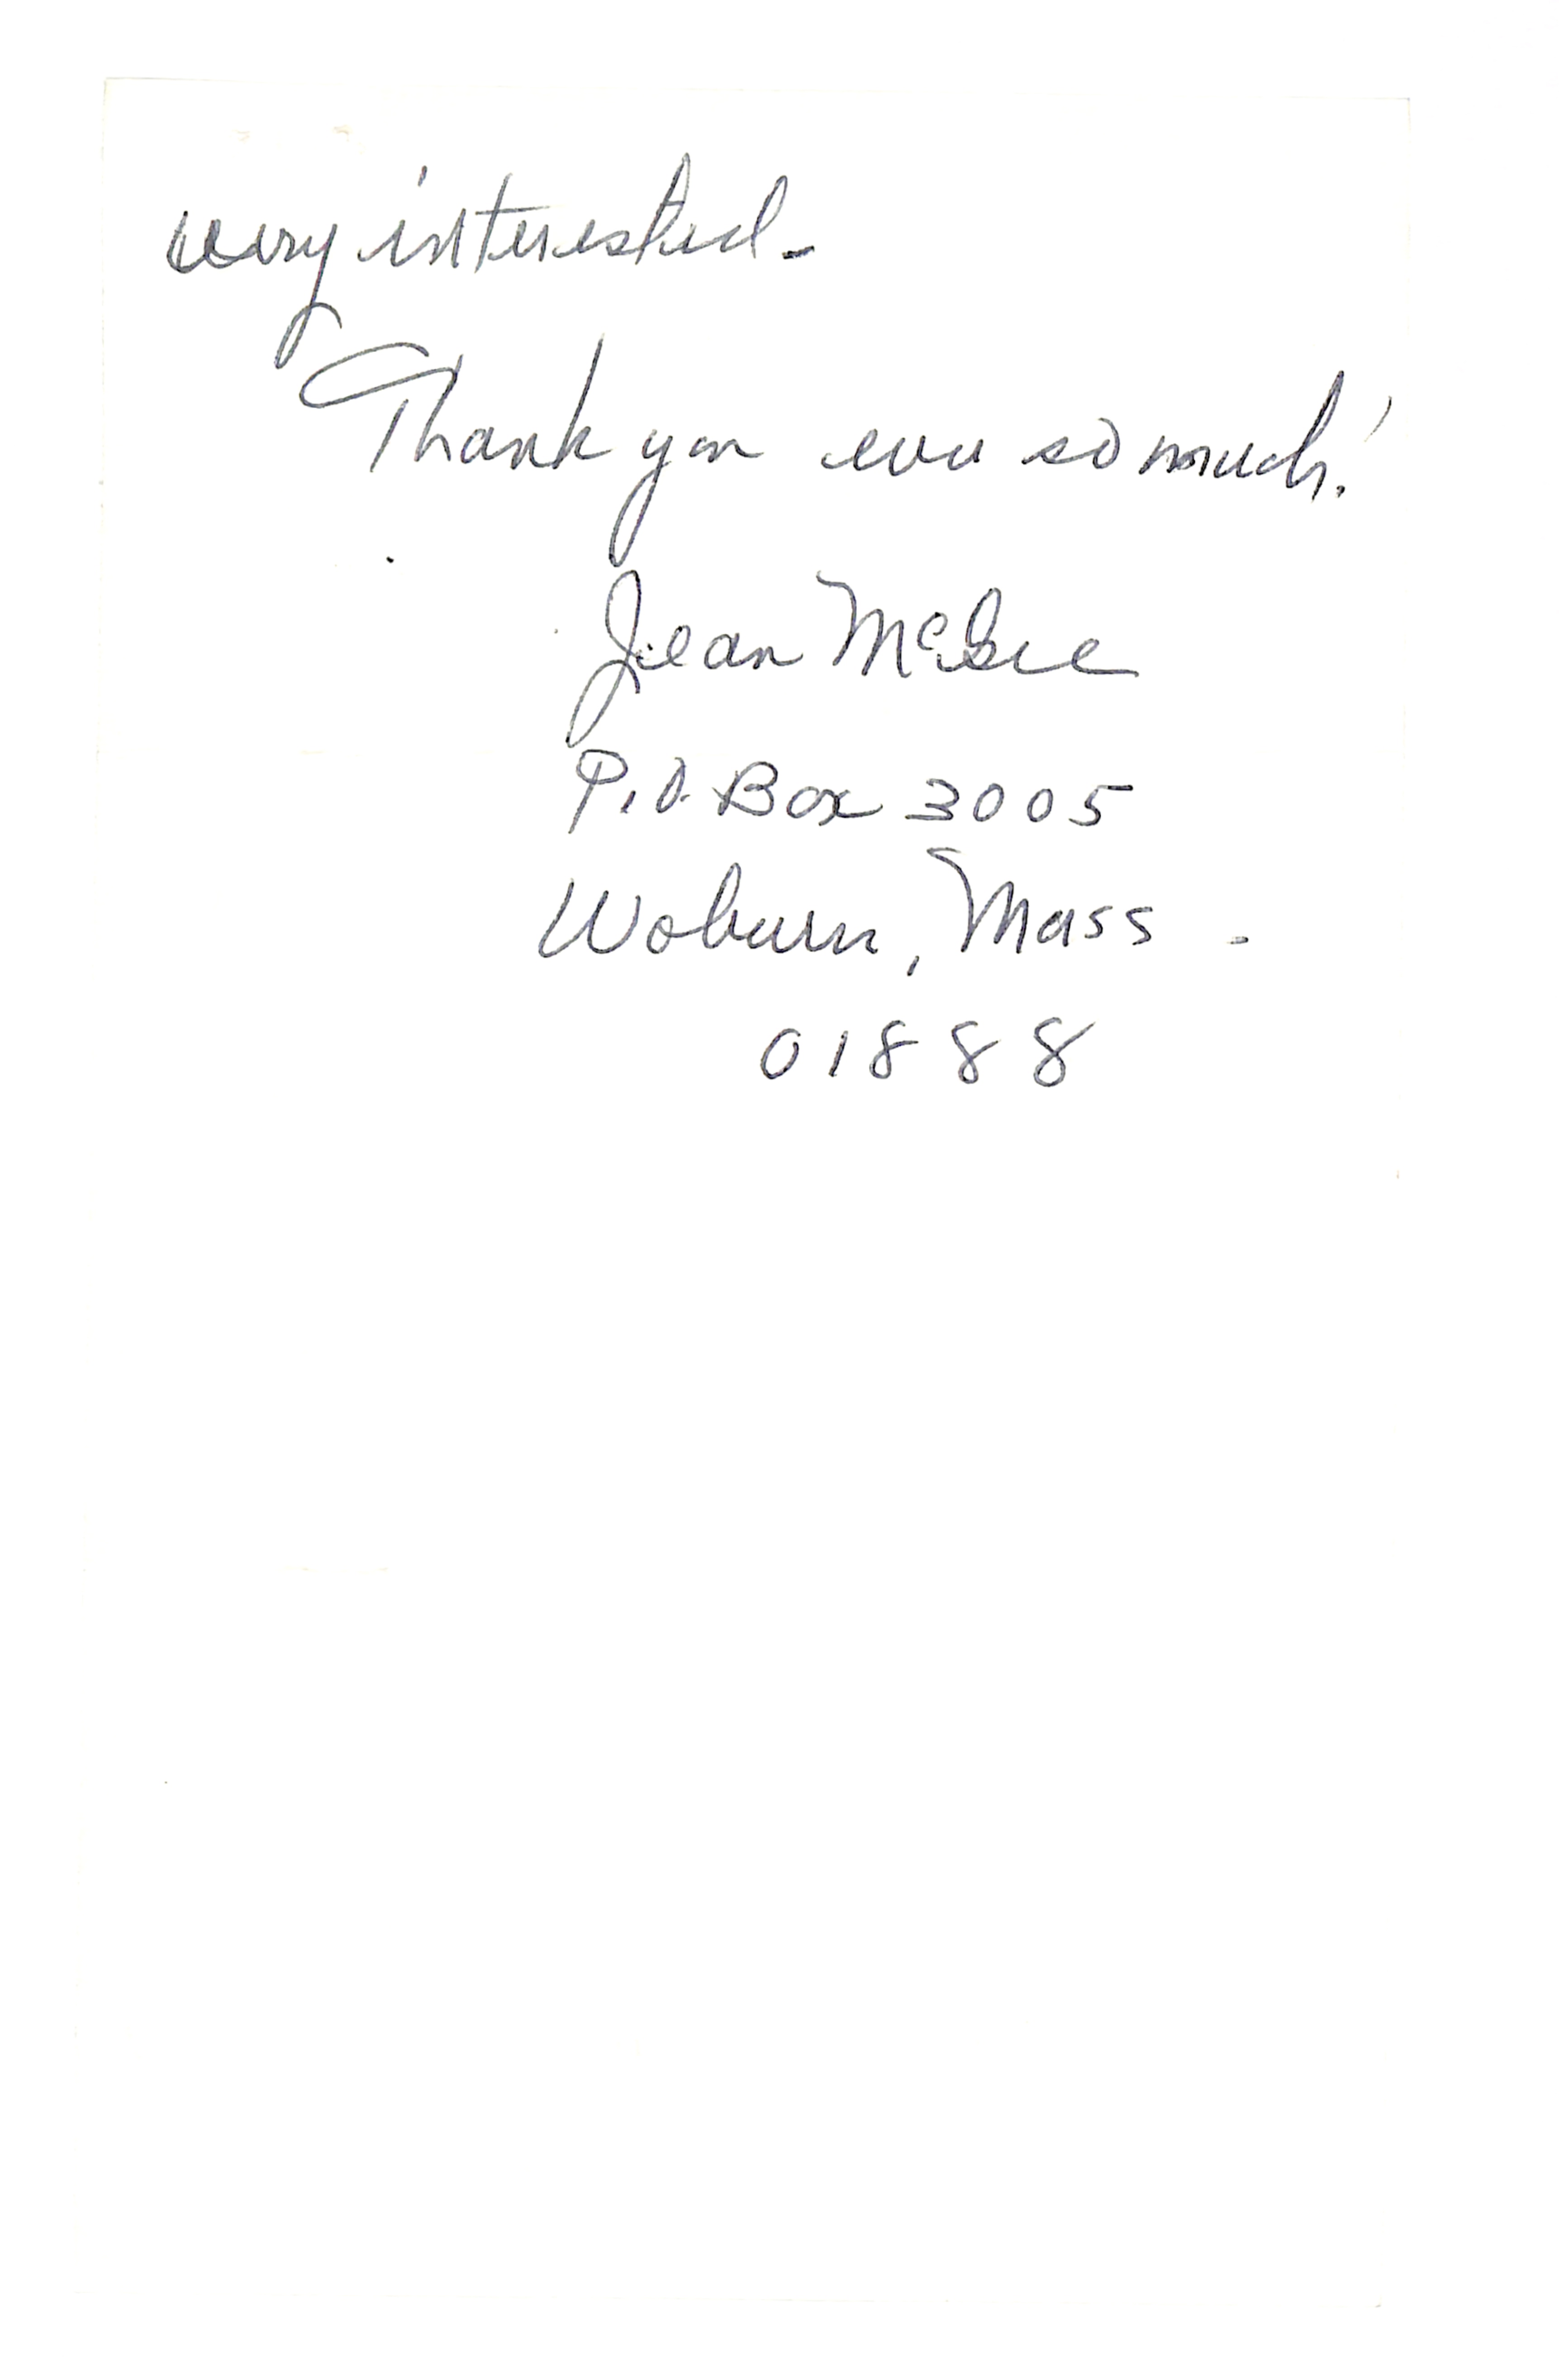 very interested -
Thank you ever so much!
Jean McGee
P.O. Box 3005
Woburn, Mass.
01888